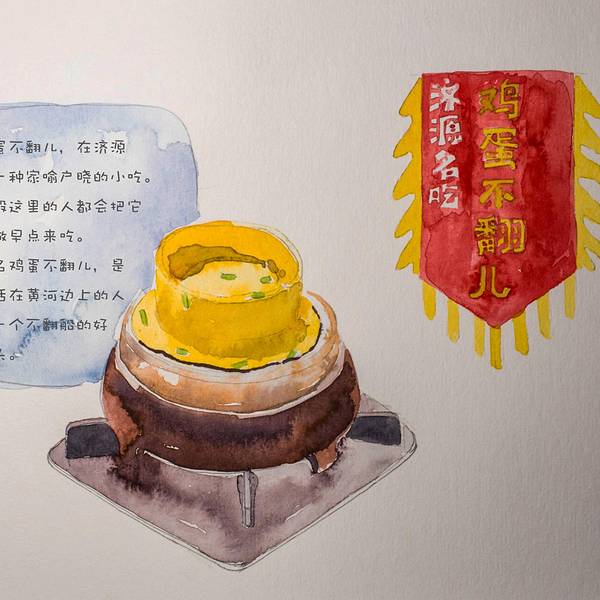 蛋不翻儿，在济源
一种家喻户晓的小吃。
这里的人都会把它
做早点来吃。
名鸡蛋不翻儿，是
活在黄河边上的人
一个不翻船的好
济源名吃
鸡蛋不翻儿